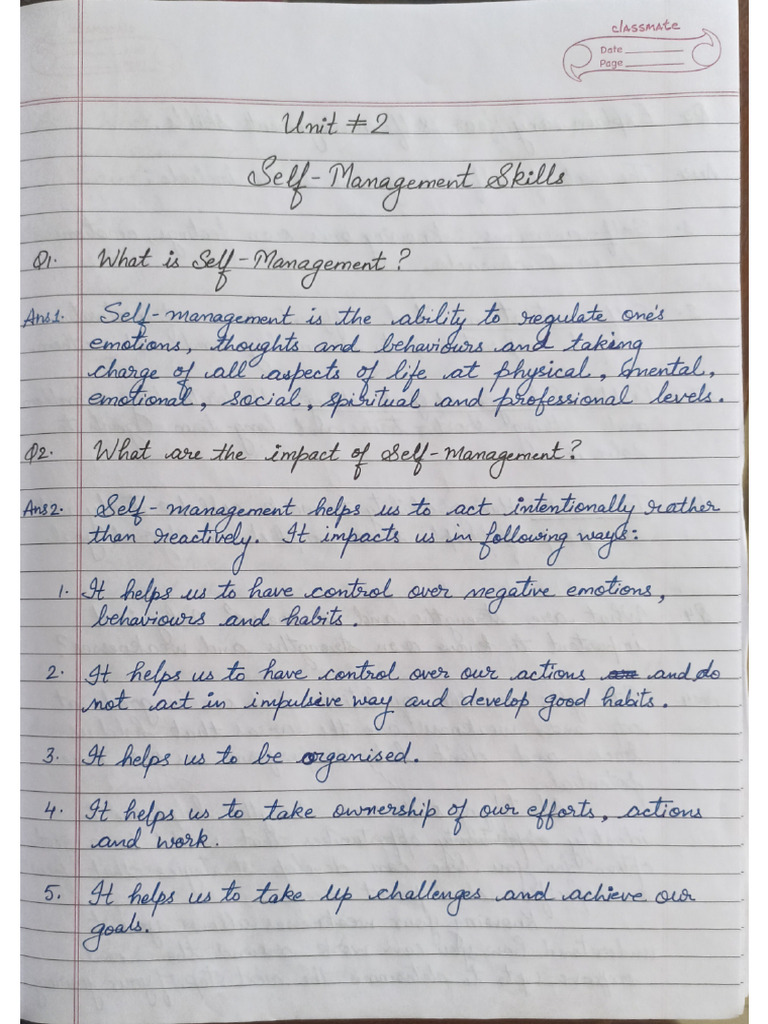 classmate
Date
Page
Unit # 2
Self-Management Skills
Q1. What is Self-Management?
Ans1. Self-management is the ability to regulate one's
emotions, thoughts and behaviours and taking
charge of all aspects of life at physical, mental,
emotional, social, spiritual and professional levels.
Q2. What are the impact of Self-management?
Ans2. Self-management helps us to act intentionally rather
than reactively. It impacts us in following ways:
1. It helps us to have control over negative emotions,
behaviours and habits.
2. It helps us to have control over our actions and do
not act in impulsive way and develop good habits.
3. It helps us to be organised.
4. It helps us to take ownership of our efforts, actions
and work.
5. It helps us to take up challenges and achieve our
goals.